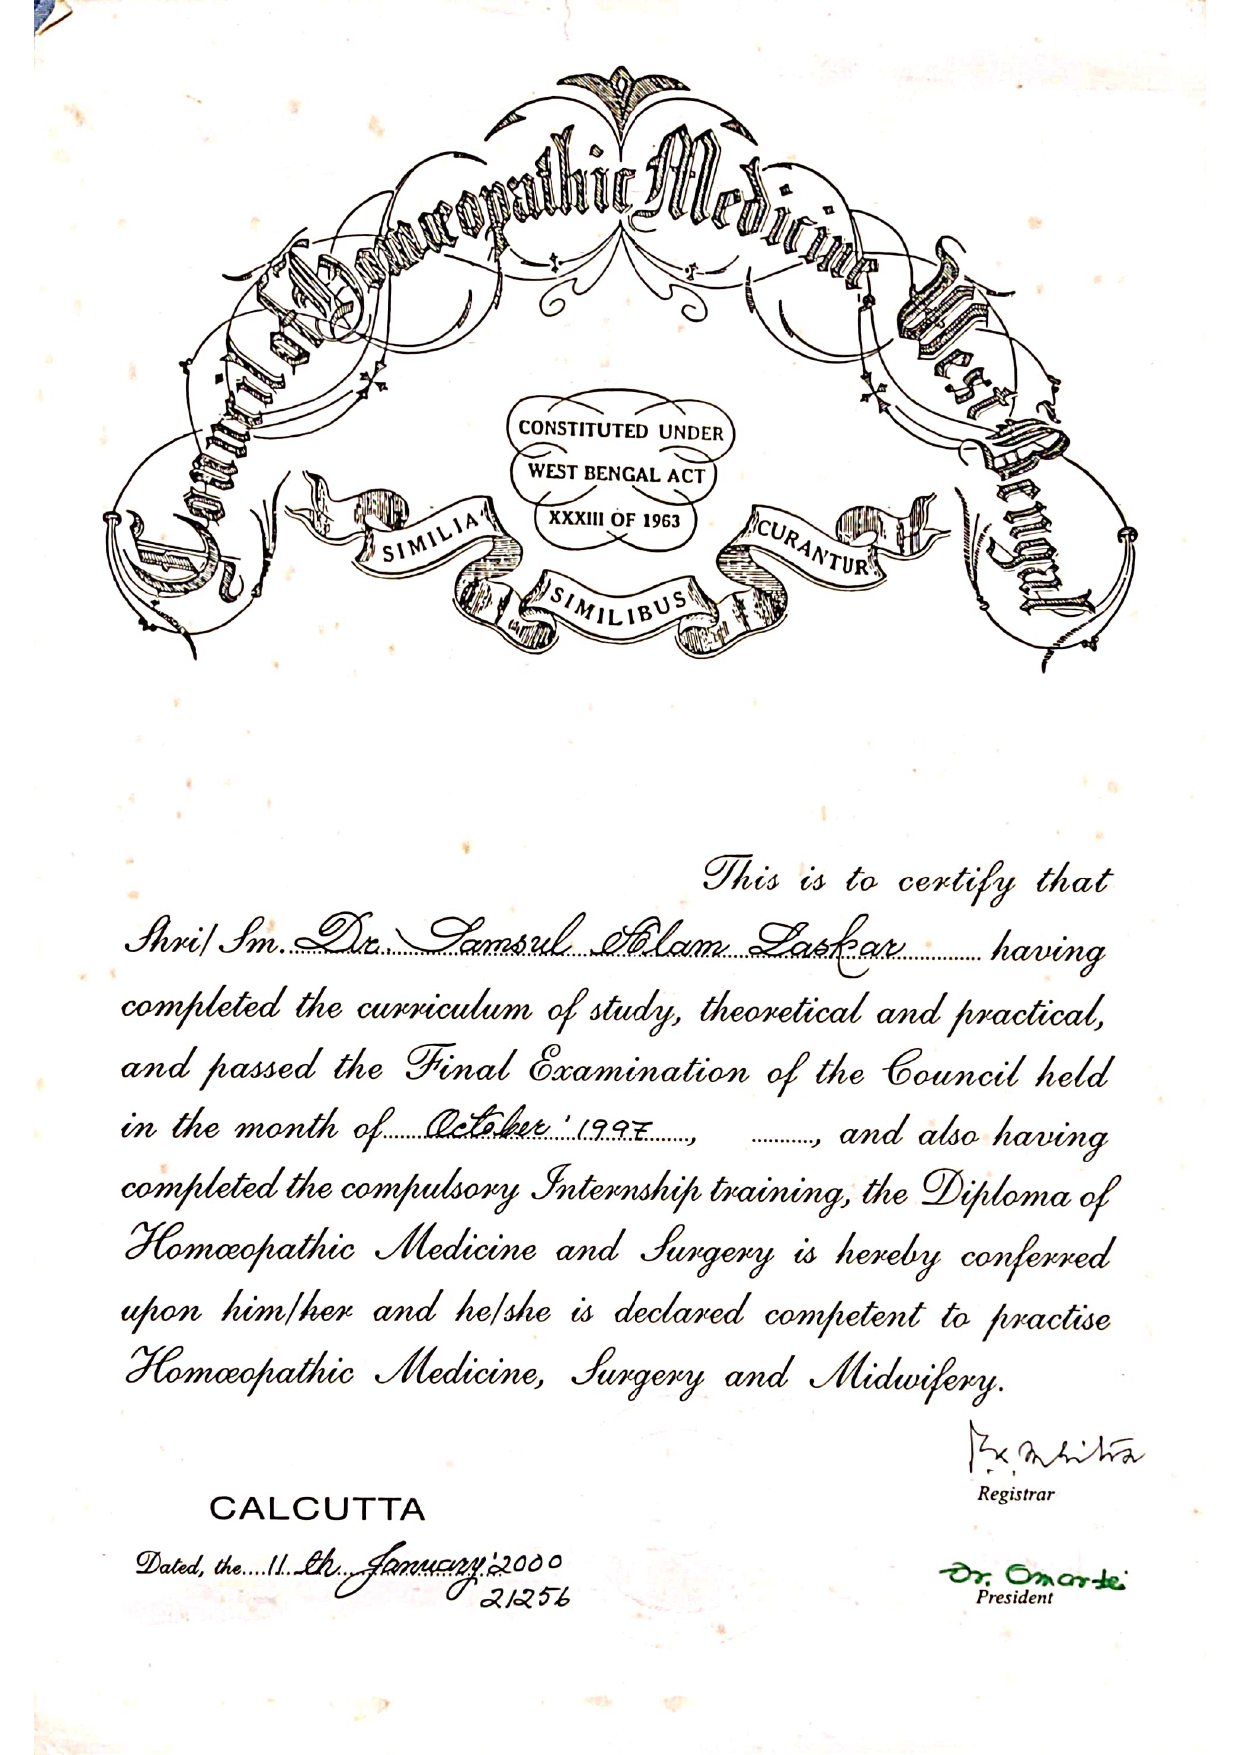 Council of Homœopathic Medicine West Bengal
CONSTITUTED UNDER
WEST BENGAL ACT
XXXIII OF 1963
SIMILIA
SIMILIBUS
CURANTUR
This is to certify that
Shri/Sm. Dr. Samsul Alam Laskar having
completed the curriculum of study, theoretical and practical,
and passed the Final Examination of the Council held
in the month of October' 1997, , and also having
completed the compulsory Internship training, the Diploma of
Homœopathic Medicine and Surgery is hereby conferred
upon him/her and he/she is declared competent to practise
Homœopathic Medicine, Surgery and Midwifery.
Registrar
CALCUTTA
Dated, the 11th January' 2000
21256
Dr.
President